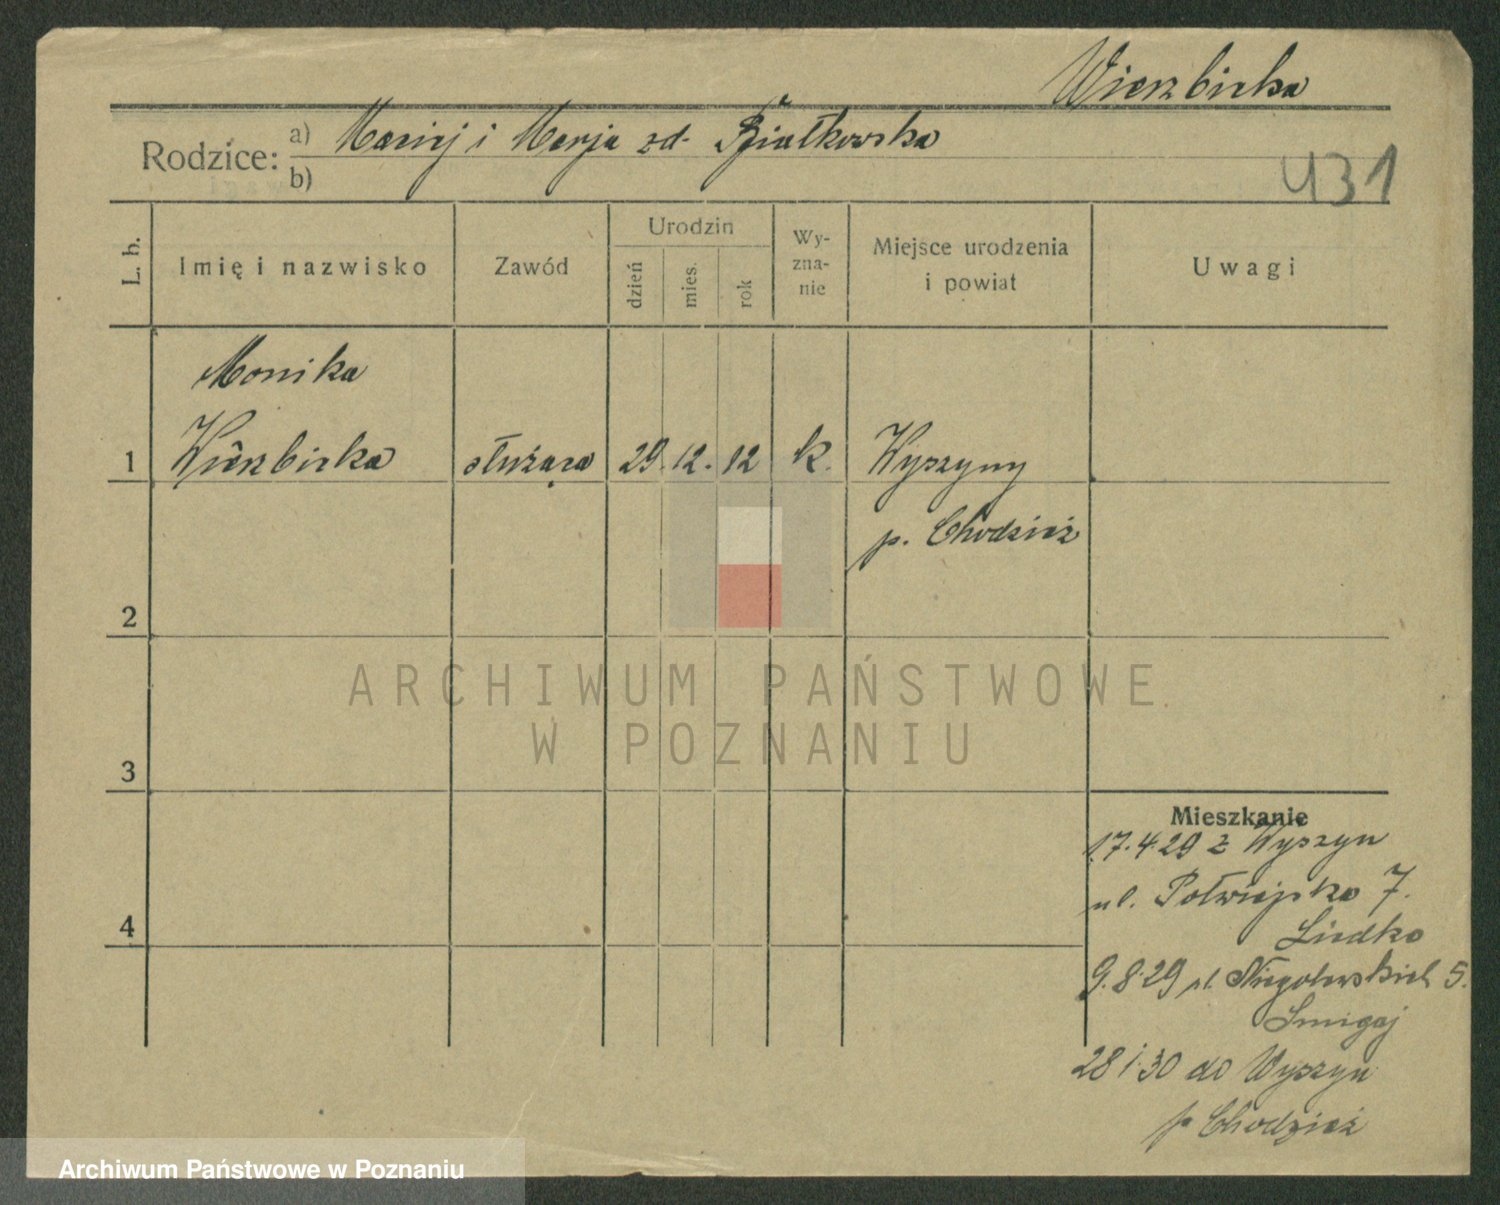 Wierzbicka
Rodzice: a) Maciej i Marja zd. Białkowska
b)
431
L. b.
Imię i nazwisko
Zawód
Urodzin
dzień
mies.
rok
Wy-
zna-
nie
Miejsce urodzenia
i powiat
Uwagi
Monika
1 Wierzbicka służąca 29. 12. 12 k. Wyszyny
p. Chodzież
2
3
4
Mieszkanie
17.4.29 z Wyszyn
ul. Półwiejska 7.
Liedke
9.8.29 ul. Niegolewskich 5.
Śmigaj
28 1.30 do Wyszyn
p Chodzież
ARCHIWUM PAŃSTWOWE
W POZNANIU
Archiwum Państwowe w Poznaniu